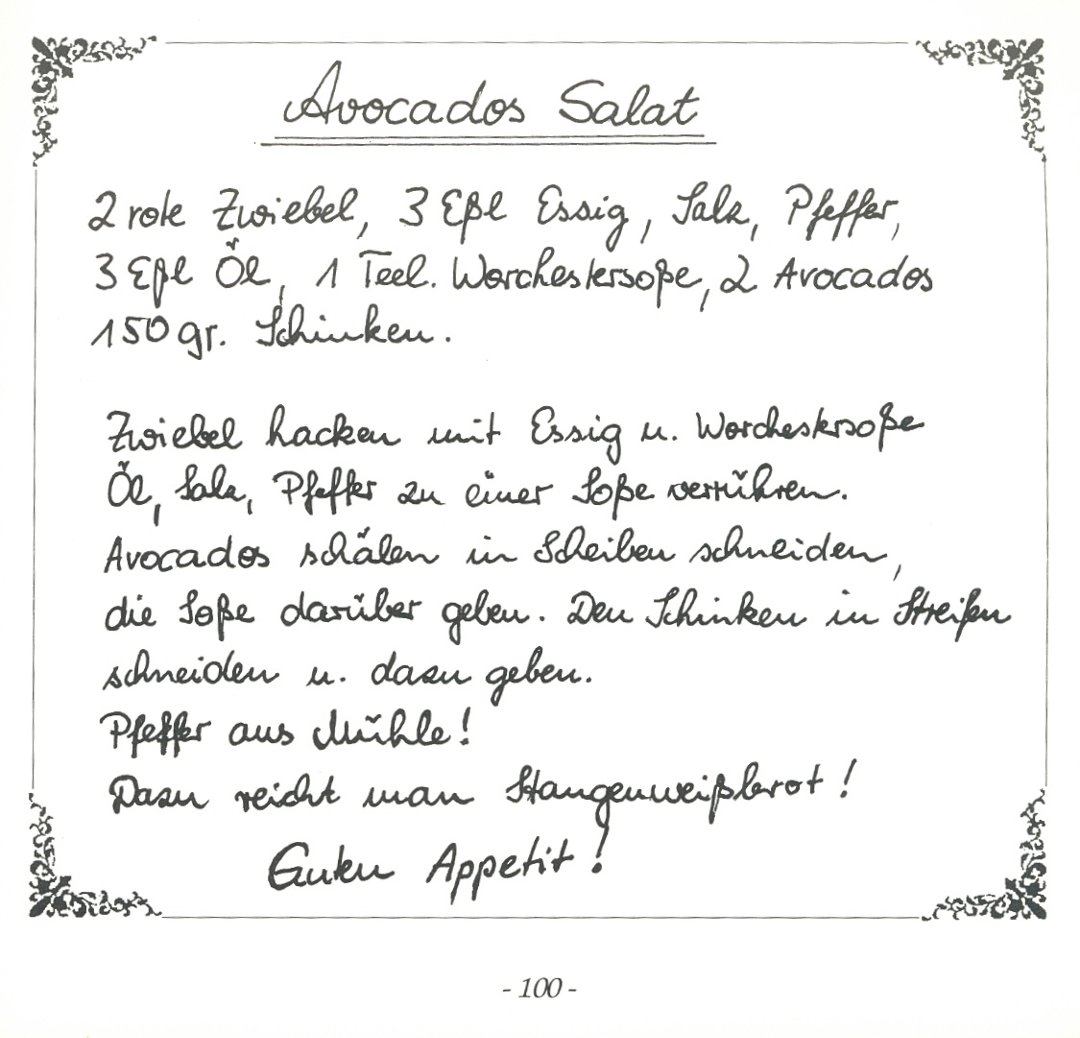 Avocados Salat
2 rote Zwiebel, 3 Eßl Essig, Salz, Pfeffer,
3 Eßl Öl, 1 Teel. Worchestersoße, 2 Avocados
150 gr. Schinken.
Zwiebel hacken mit Essig u. Worchestersoße
Öl, Salz, Pfeffer zu einer Soße verrühren.
Avocados schälen in Scheiben schneiden,
die Soße darüber geben. Den Schinken in Streifen
schneiden u. dazu geben.
Pfeffer aus Mühle!
Dazu reicht man Stangenweißbrot!
Guten Appetit!
- 100 -